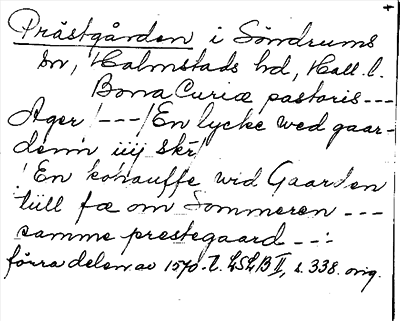 Prästgården i Söndrums
sn, Halmstads hd, Hall. l.
Bona Curiæ pastoris ---
Ager / --- / En lycke wed gaar-
denn iiij skr /
/ En kohauffe wid Gaarden
till fæ om Sommeren ---
samme prestegaard --:
förra delen av 1570-t. LSLB II, s. 338. orig.